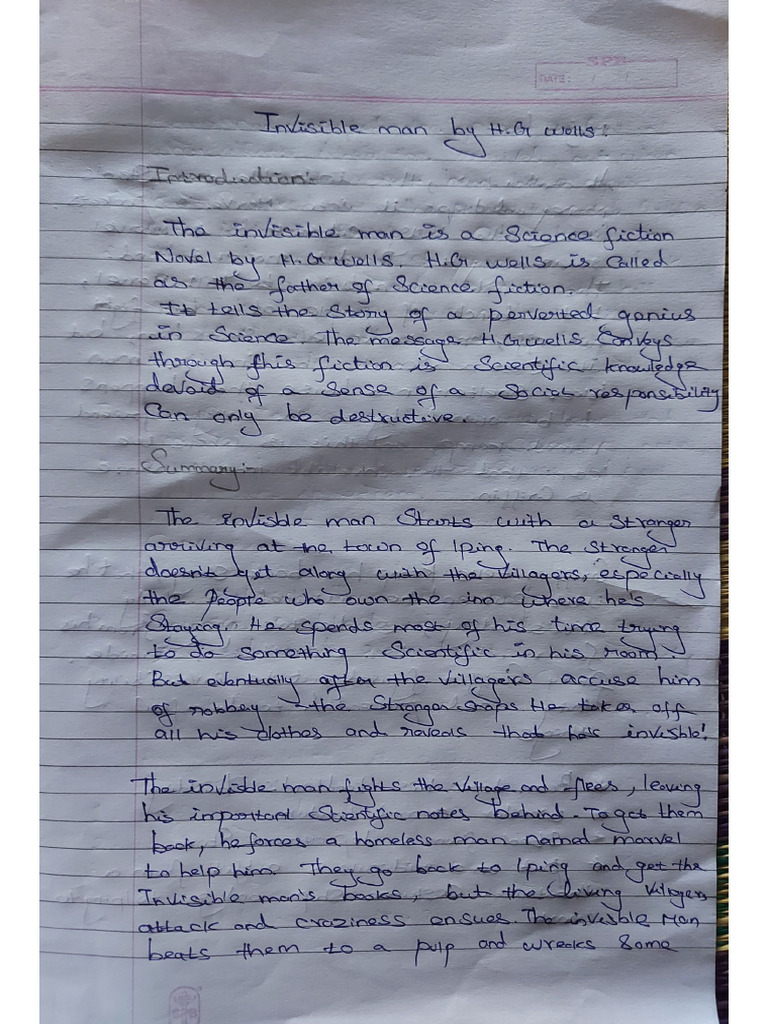 SPB
DATE: / /
Invisible man by H.G wells:
Introduction:-
The invisible man is a Science fiction
Novel by H.G wells. H.G wells is Called
as the father of Science fiction.
It tells the Story of a perverted genius
in Science. The message H.G wells Conveys
through this fiction is Scientific knowledge
devoid of a Sense of a Social responsibility
Can only be destructive.
Summary:-
The invisble man Starts with a Stranger
arriving at the town of Iping. The Stranger
doesn't get along with the Villagers, especially
the People who own the inn where he's
Staying. He spends most of his time trying
to do Something Scientific in his room.
But eventually after the Villagers accuse him
of robbey the Stranger Snaps He takes off
all his clothes and reveals that he's invisble!
The invisble man fights the Village and flees, leaving
his important Scientific notes behind. To get them
back, he forces a homeless man named marvel
to help him. They go back to Iping and get the
Invisible man's books, but the living Villagers
attack and craziness ensues. The invisble Man
beats them to a pulp and wreaks Some
SPB